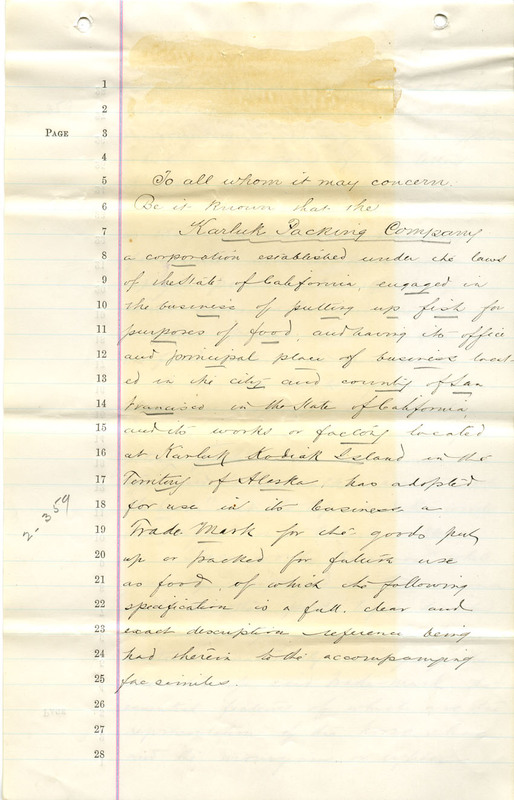 1
2
PAGE 3
4
5 To all whom it may concern.
6 Be it known that the
7 Karluk Packing Company
8 a corporation established under the laws
9 of the State of California, engaged in
10 the business of putting up fish for
11 purposes of food, and having its office
12 and principal place of business locat-
13 ed in the city and county of San
14 Francisco in the State of California,
15 and its works or factory located
16 at Karluk Kodiak Island in the
17 Territory of Alaska, has adopted
18 for use in its business a
19 Trade Mark for the goods put
20 up or packed for future use
21 as food, of which the following
22 specification is a full, clear and
23 exact description reference being
24 had therein to the accompanying
25 facsimiles.
26
27
28
2-359